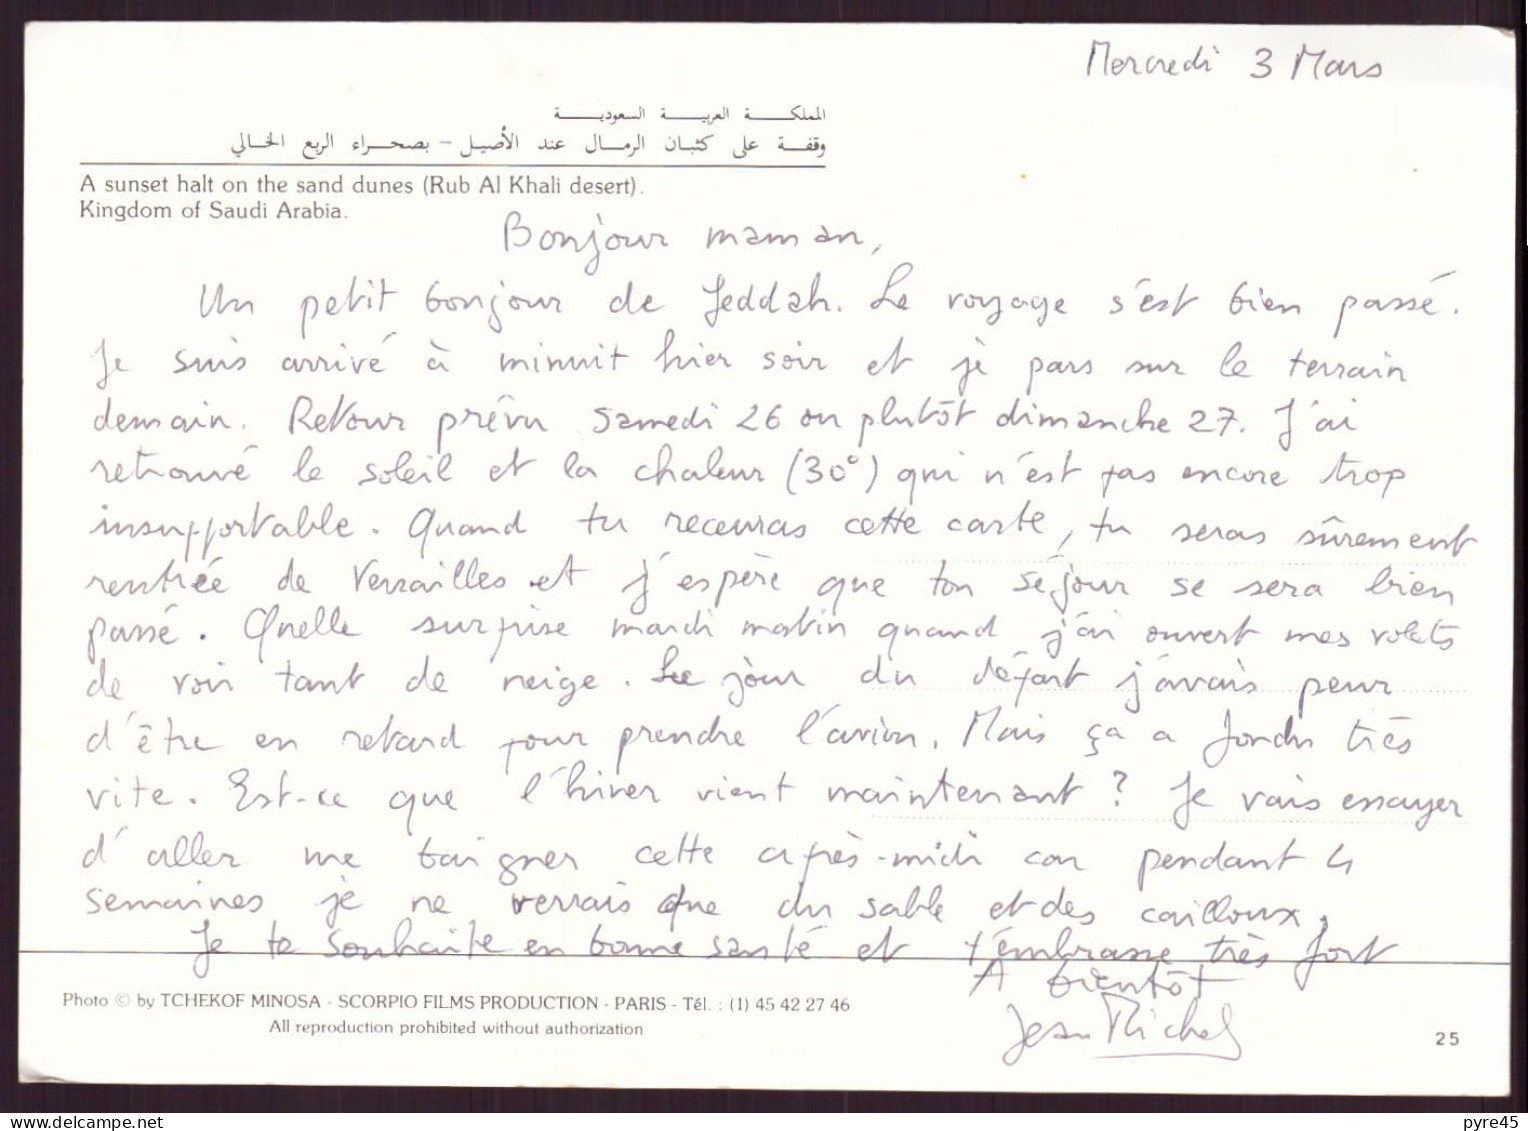 Mercredi 3 Mars
المملكة العربية السعودية
وقفة على كثبان الرمال عند الأصيل - بصحراء الربع الخالي
A sunset halt on the sand dunes (Rub Al Khali desert).
Kingdom of Saudi Arabia.
Bonjour maman,
Un petit bonjour de Jeddah. Le voyage s'est bien passé.
Je suis arrivé à minuit hier soir et je pars sur le terrain
demain. Retour prévu samedi 26 ou plutôt dimanche 27. J'ai
retrouvé le soleil et la chaleur (30°) qui n'est pas encore trop
insupportable. Quand tu recevras cette carte, tu seras sûrement
rentrée de Versailles et j'espère que ton séjour se sera bien
passé. Quelle surprise mardi matin quand j'ai ouvert mes volets
de voir tant de neige. Le jour du départ j'avais peur
d'être en retard pour prendre l'avion. Mais ça a fondu très
vite. Est-ce que l'hiver vient maintenant ? Je vais essayer
d'aller me baigner cette après-midi car pendant 4
semaines je ne verrais que du sable et des cailloux.
Je te souhaite en bonne santé et t'embrasse très fort
A bientôt
Jean Michel
Photo © by TCHEKOF MINOSA - SCORPIO FILMS PRODUCTION - PARIS - Tél. : (1) 45 42 27 46
All reproduction prohibited without authorization
25
pyre45